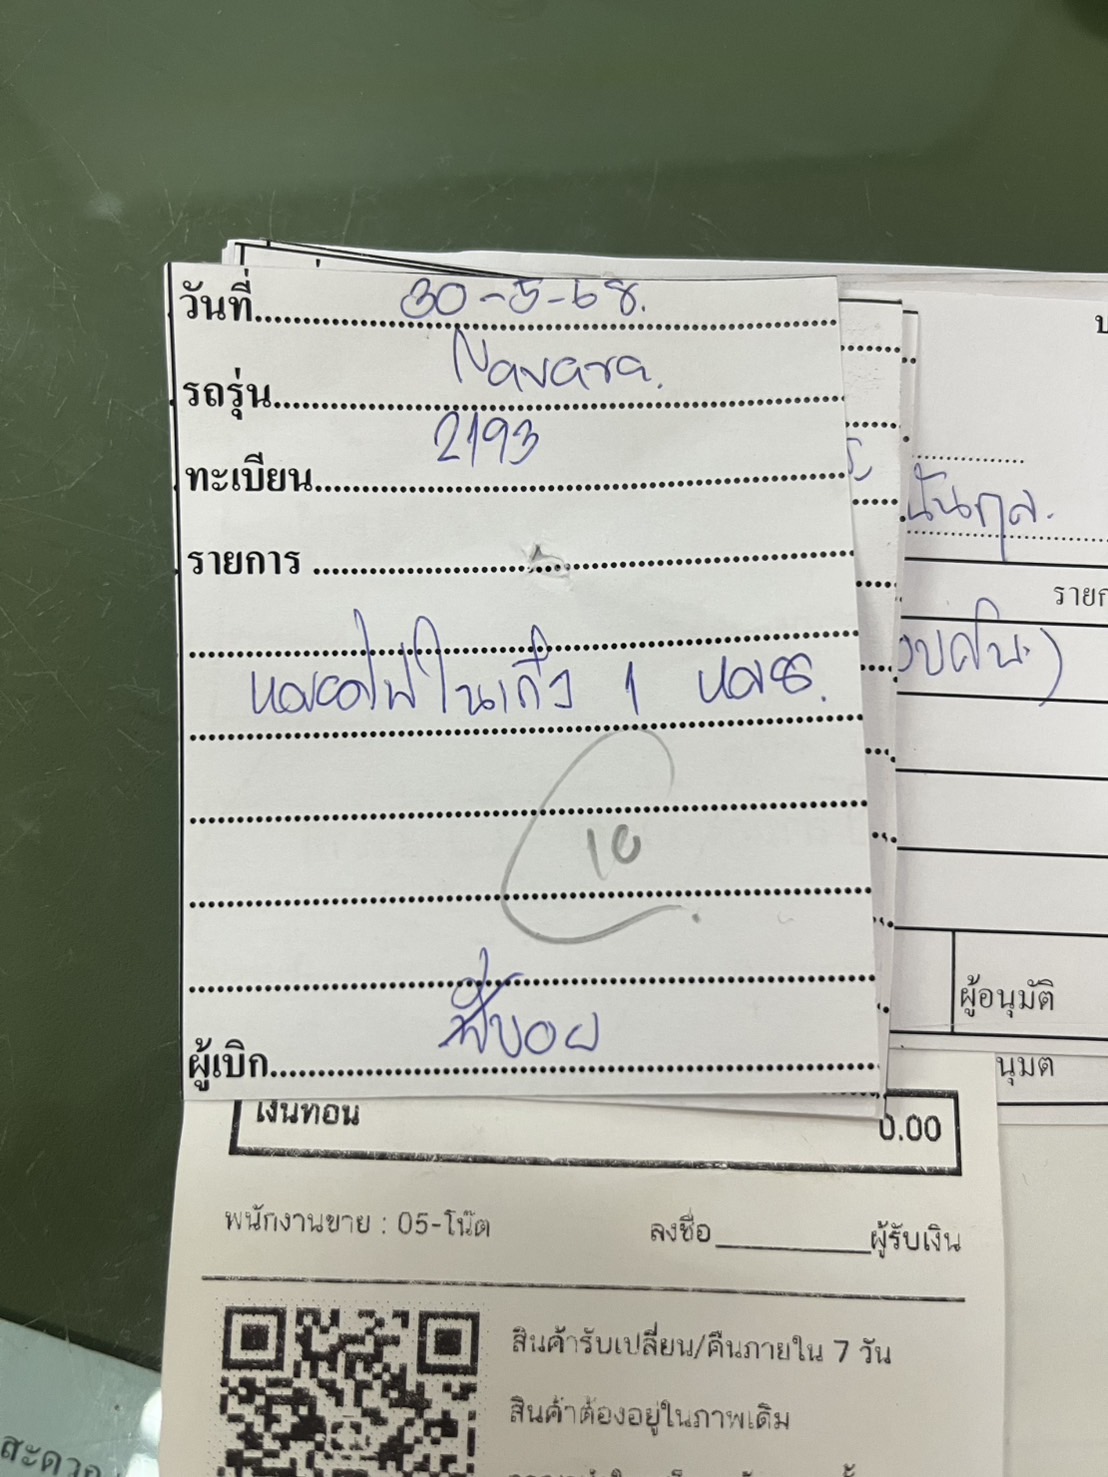 วันที่ 30-5-68.
รถรุ่น Navara.
ทะเบียน 2193
รายการ
หลอดไฟในเก๋ง 1 หลอด.
10
ผู้เบิก พี่บอย
นันกุล.
รายก
ผู้อนุมัติ
นุมัติ
เงินทอน 0.00
พนักงานขาย : 05-โน๊ต ลงชื่อ ผู้รับเงิน
สินค้ารับเปลี่ยน/คืนภายใน 7 วัน
สินค้าต้องอยู่ในภาพเดิม
สะดวก